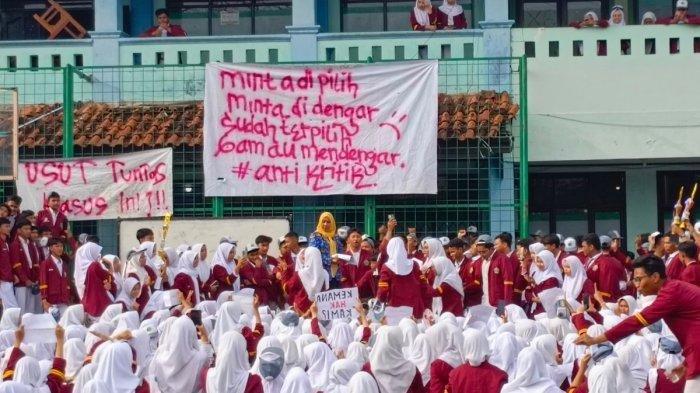 minta di pilih
minta di dengar
Sudah terpilih
Gam du mendengar.
# anti kritik.
USUT TUNTAS
KASUS INI!!!
KEMANA
HAK
KAMI